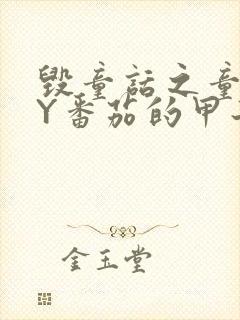 毁童话之童
Y番茄的甲
金玉堂